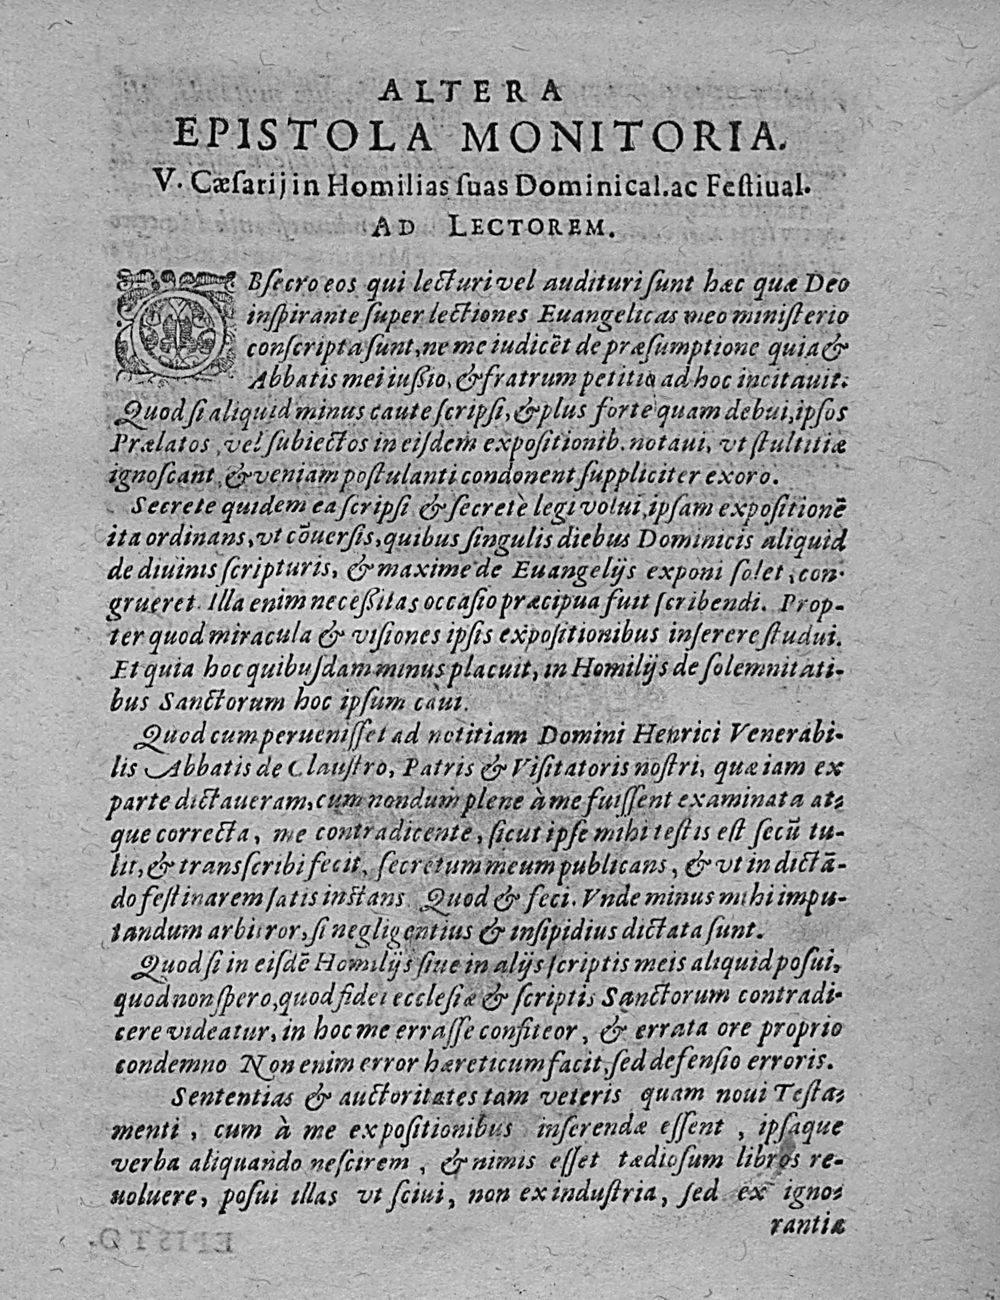 ALTERA
EPISTOLA MONITORIA.
V. Cæsarij in Homilias suas Dominical. ac Festiual.
AD LECTOREM.
OBsecro eos qui lecturi vel audituri sunt hæc quæ Deo
inspirante super lectiones Euangelicas meo ministerio
conscripta sunt, ne me iudicēt de præsumptione quia &
Abbatis mei iussio, & fratrum petitio ad hoc incitauit.
Quod si aliquid minus caute scripsi, & plus forte quam debui, ipsos
Prælatos, vel subiectos in eisdem expositionib. notaui, vt stultitiæ
ignoscant, & veniam postulanti condonent suppliciter exoro.
Secrete quidem ea scripsi & secretè legi volui, ipsam expositionē
ita ordinans, vt cōuersis, quibus singulis diebus Dominicis aliquid
de diuinis scripturis, & maxime de Euangelijs exponi solet, con-
grueret. Illa enim necessitas occasio præcipua fuit scribendi. Prop-
ter quod miracula & visiones ipsis expositionibus inserere studui.
Et quia hoc quibusdam minus placuit, in Homilijs de solemnitati-
bus Sanctorum hoc ipsum caui.
Quod cum peruenisset ad notitiam Domini Henrici Venerabi-
lis Abbatis de Claustro, Patris & Visitatoris nostri, quæ iam ex
parte dictaueram, cum nondum plene à me fuissent examinata at-
que correcta, me contradicente, sicut ipse mihi testis est secū tu-
lit, & transcribi fecit, secretum meum publicans, & vt in dictā-
do festinarem satis instans. Quod & feci. Vnde minus mihi impu-
tandum arbitror, si negligentius & insipidius dictata sunt.
Quod si in eisdē Homilijs siue in alijs scriptis meis aliquid posui,
quod non spero, quod fidei ecclesiæ & scriptis Sanctorum contradi-
cere videatur, in hoc me errasse confiteor, & errata ore proprio
condemno Non enim error hæreticum facit, sed defensio erroris.
Sententias & auctoritates tam veteris quam noui Testa-
menti, cum à me expositionibus inserendæ essent, ipsaque
verba aliquando nescirem, & nimis esset tædiosum libros re-
uoluere, posui illas vt sciui, non ex industria, sed ex igno-
rantiæ
EPISTO.